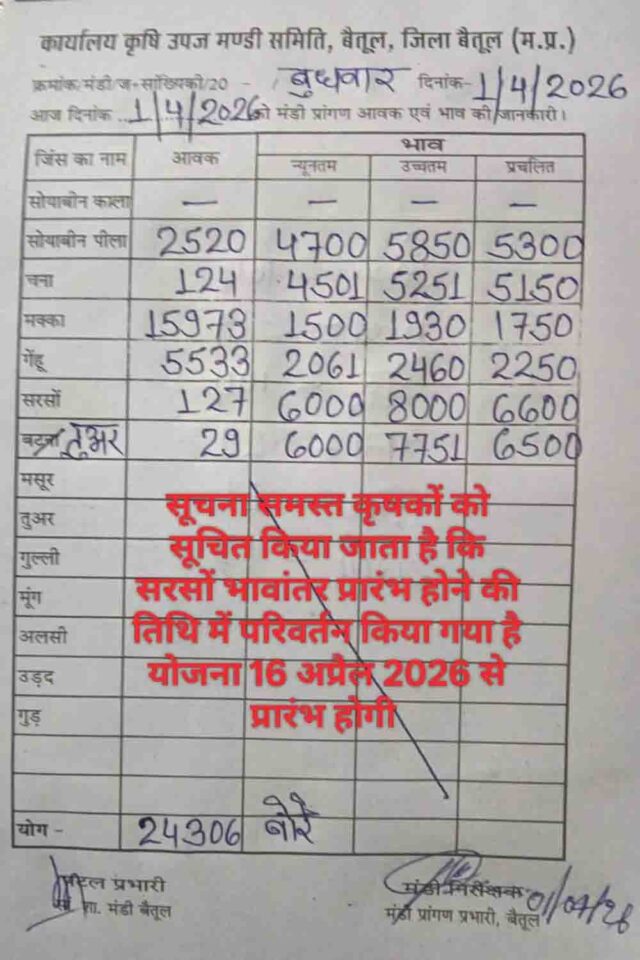 कार्यालय कृषि उपज मण्डी समिति, बैतूल, जिला बैतूल (म.प्र.)
क्रमांक/मंडी/ज-सांख्यिकी/20 - बुधवार दिनांक- 1/4/2026
आज दिनांक 1/4/2026 को मंडी प्रांगण आवक एवं भाव की जानकारी।
जिंस का नाम आवक भाव
न्यूनतम उच्चतम प्रचलित
सोयाबीन काला — — — —
सोयाबीन पीला 2520 4700 5850 5300
चना 124 4501 5251 5150
मक्का 15973 1500 1930 1750
गेंहू 5533 2061 2460 2250
सरसों 127 6000 8000 6600
बटना तुअर 29 6000 7751 6500
मसूर
तुअर
गुल्ली
मूंग
अलसी
उड़द
गुड़
सूचना समस्त कृषकों को
सूचित किया जाता है कि
सरसों भावांतर प्रारंभ होने की
तिथि में परिवर्तन किया गया है
योजना 16 अप्रैल 2026 से
प्रारंभ होगी
योग - 24306 बोरे
प्रभारी
मंडी बैतूल
मंडी निरीक्षक 01/04/26
मंडी प्रांगण प्रभारी, बैतूल